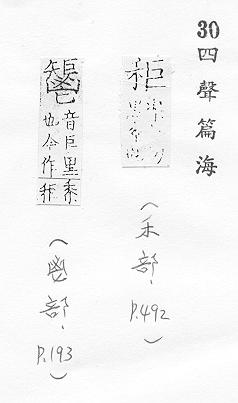 30 四聲篇海
秬
(禾部、P.492)
音巨里黍
也今作秬
(鬯部、P.193)